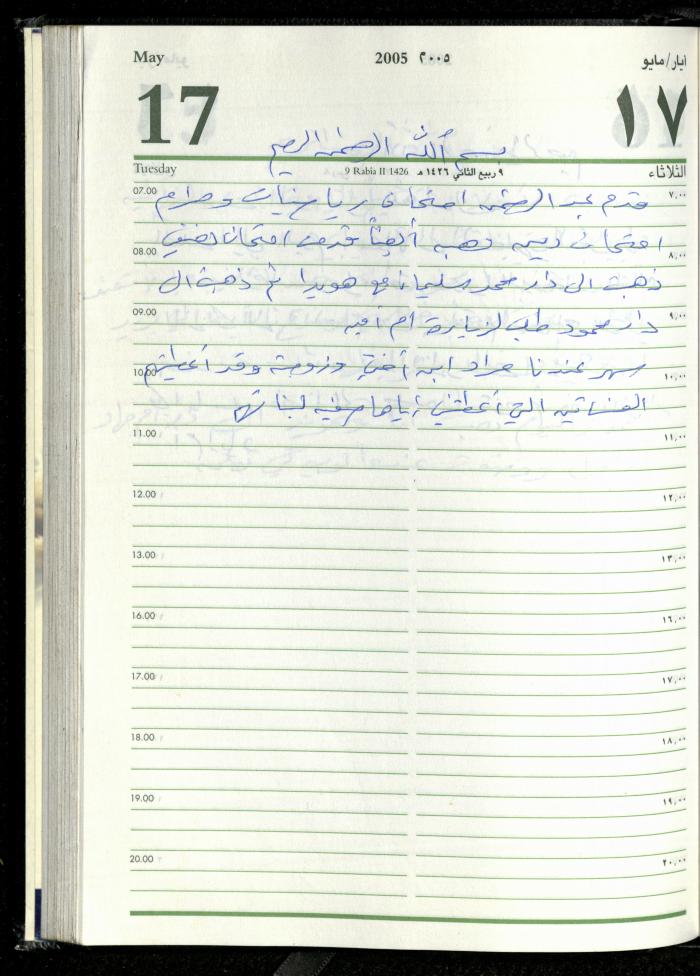 May 2005 ٢٠٠٥ ايار/مايو
17 ١٧
بسم الله الرحمن الرحيم
Tuesday 9 Rabia II 1426 ٩ ربيع الثاني ١٤٢٦ هـ الثلاثاء
07.00 قدم عبد الرحمن امتحان رياضيات و ٧,٠٠
امتحان أيضاً امتحان
08.00 ٨,٠٠
ذهبت الى دار محمد سليمان ثم ذهبت الى
09.00 دار محمود لزيارة أم ٩,٠٠
سهر عندنا مراد ابن أختي وزوجته وقد أعطيتهم
10.00 ١٠,٠٠
الفساتين التي أعطتني إياها لبناتهم
11.00 ١١,٠٠
12.00 ١٢,٠٠
13.00 ١٣,٠٠
16.00 ١٦,٠٠
17.00 ١٧,٠٠
18.00 ١٨,٠٠
19.00 ١٩,٠٠
20.00 ٢٠,٠٠